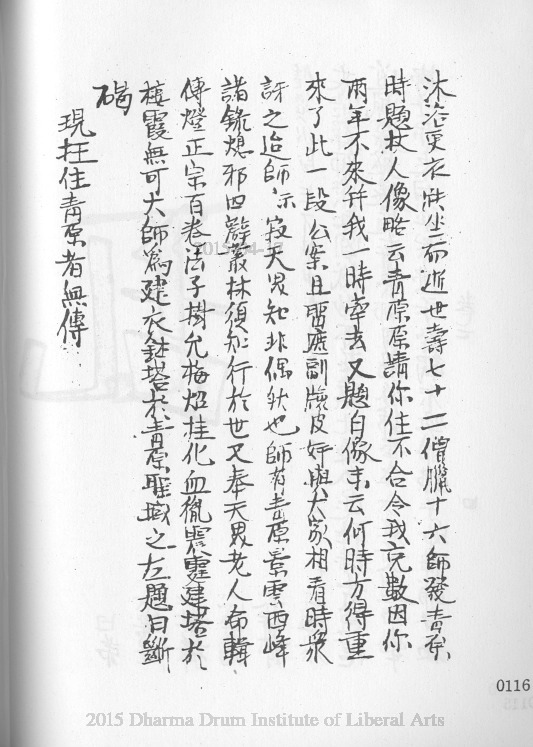 沐浴更衣趺坐而逝世壽七十二僧臘十六師發青原
時題杖人像略云青原原請你住不合令我充數因你
兩年不來并我一時牽去又題自像末云何時方得重
來了此一段公案且留應副牓皮好與大家相看時衆
訝之迨師示寂天界知非偶狀也師有青原景雲西峰
諸錄熄邪四辯叢林須知行於世又奉天界老人命輯
傳燈正宗百卷法子樹允梅炤桂化血衹震靈建塔於
棲霞無可大師為建衣鉢塔於青原聖域之左題曰斷
碣
現在住青原者無傳
2015-04-17
0116
2015 Dharma Drum Institute of Liberal Arts